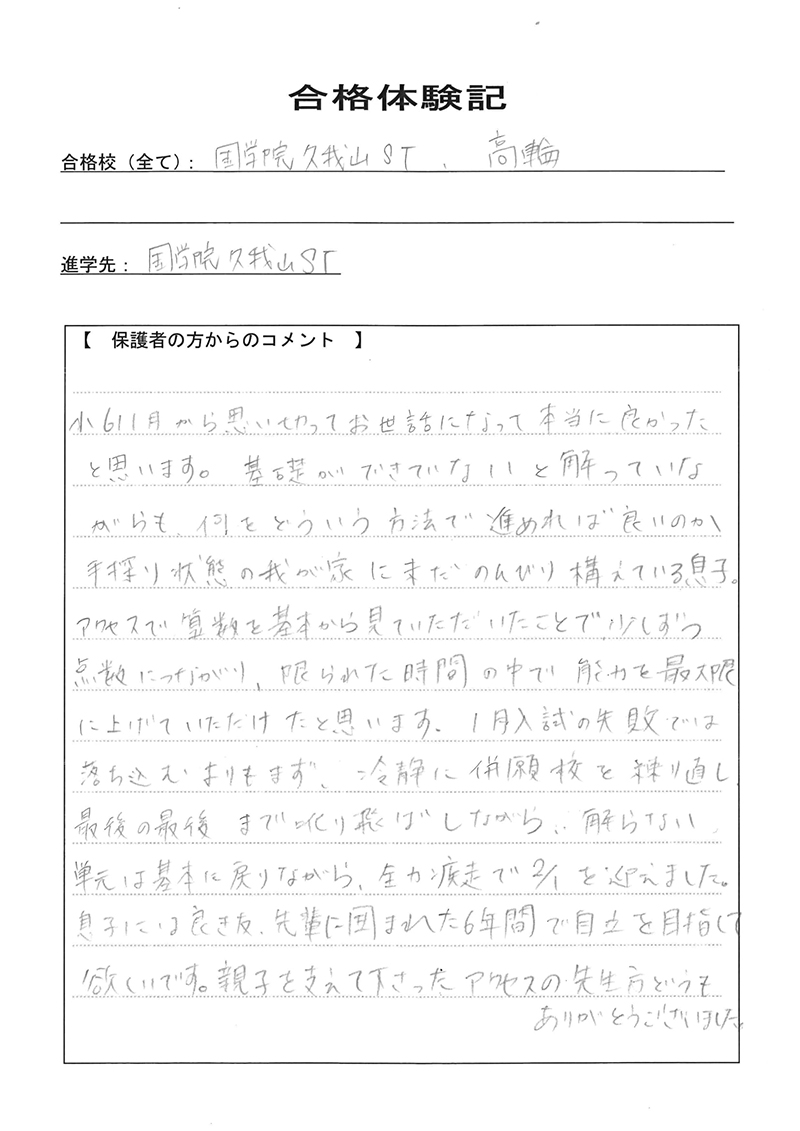 合格体験記
合格校（全て）： 国学院久我山ST 、 高輪
進学先： 国学院久我山ST
【 保護者の方からのコメント 】
小611月から思い切ってお世話になって本当に良かった
と思います。 基礎ができていないと解っていな
がらも、何をどういう方法で進めれば良いのか、
手探り状態の我が家に未だのんびり構えている息子。
アクセスで算数を基本から見ていただいたことで、少しずつ
点数につながり、限られた時間の中で能力を最大限
に上げていただけたと思います。1月入試の失敗では
落ち込むよりもまず、冷静に併願校を練り直し
最後の最後まで叱り飛ばしながら、解らない
単元は基本に戻りながら、全力疾走で2/1を迎えました。
息子には良き友、先輩に囲まれた6年間で自立を目指して
欲しいです。親子を支えて下さったアクセスの先生方どうも
ありがとうございました。